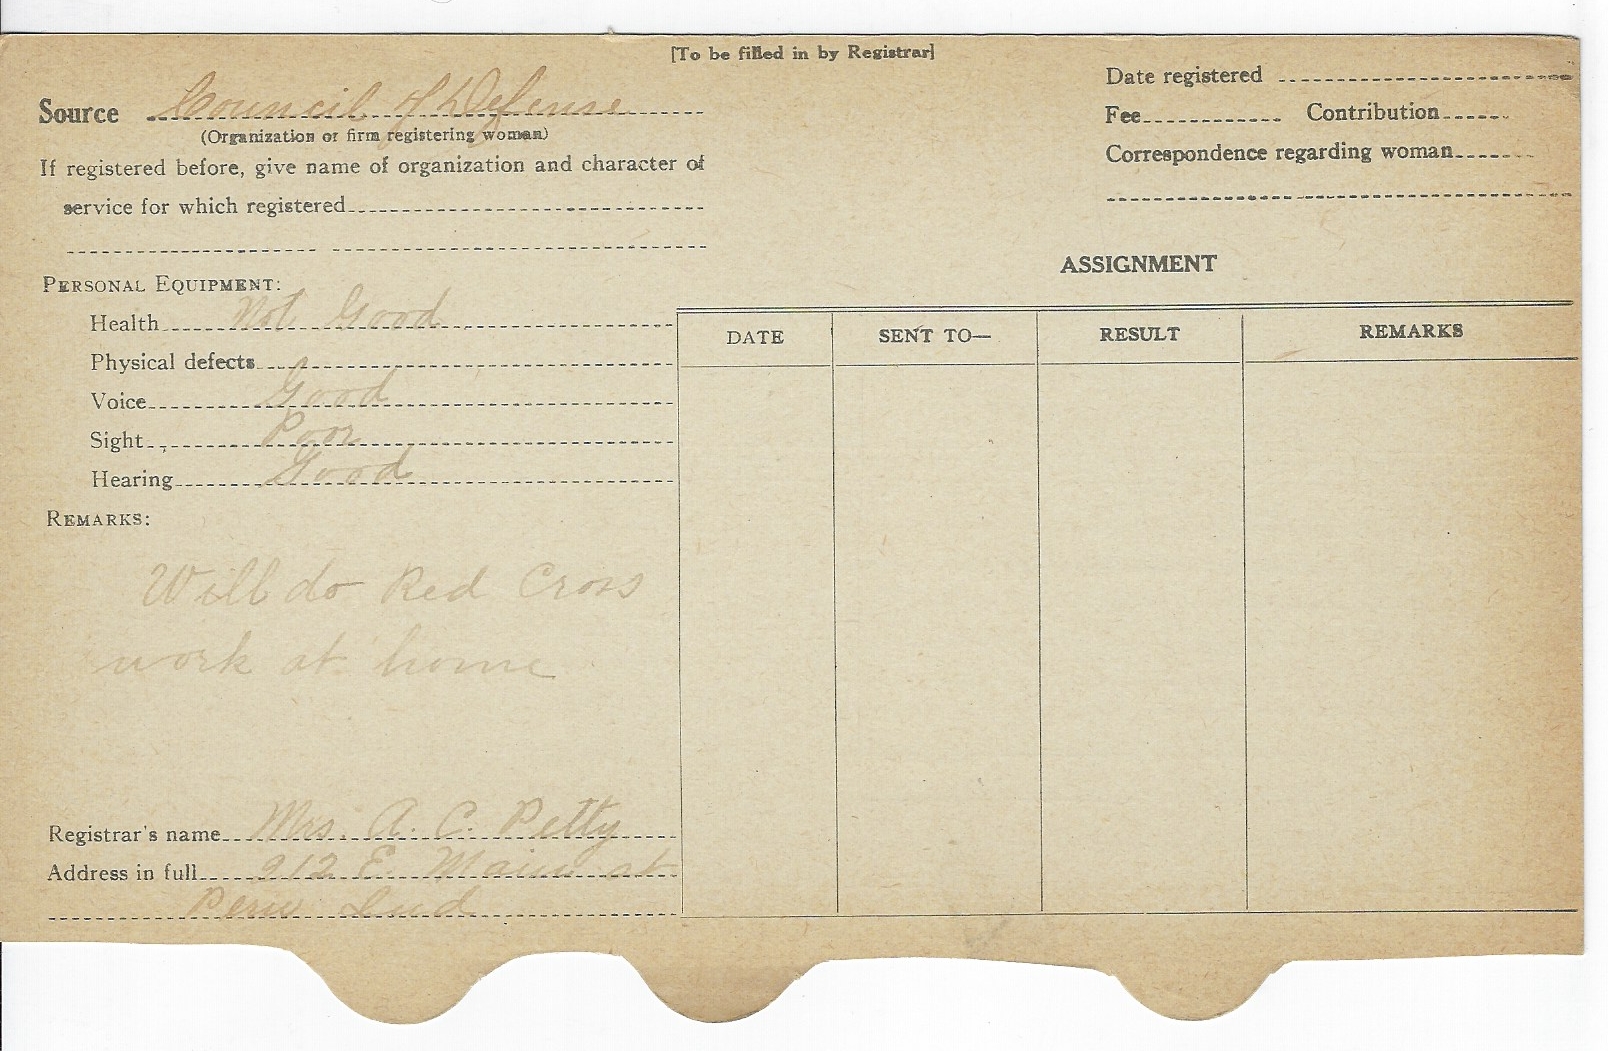 [To be filled in by Registrar]
Source Council of Defense
(Organization or firm registering woman)
If registered before, give name of organization and character of
service for which registered
Date registered
Fee Contribution
Correspondence regarding woman
PERSONAL EQUIPMENT:
Health Not Good
Physical defects
Voice Good
Sight Poor
Hearing Good
REMARKS:
Will do Red Cross
work at home
Registrar's name Mrs. A. C. Petty
Address in full 212 E. Main st
Peru Ind
ASSIGNMENT
DATE SENT TO— RESULT REMARKS